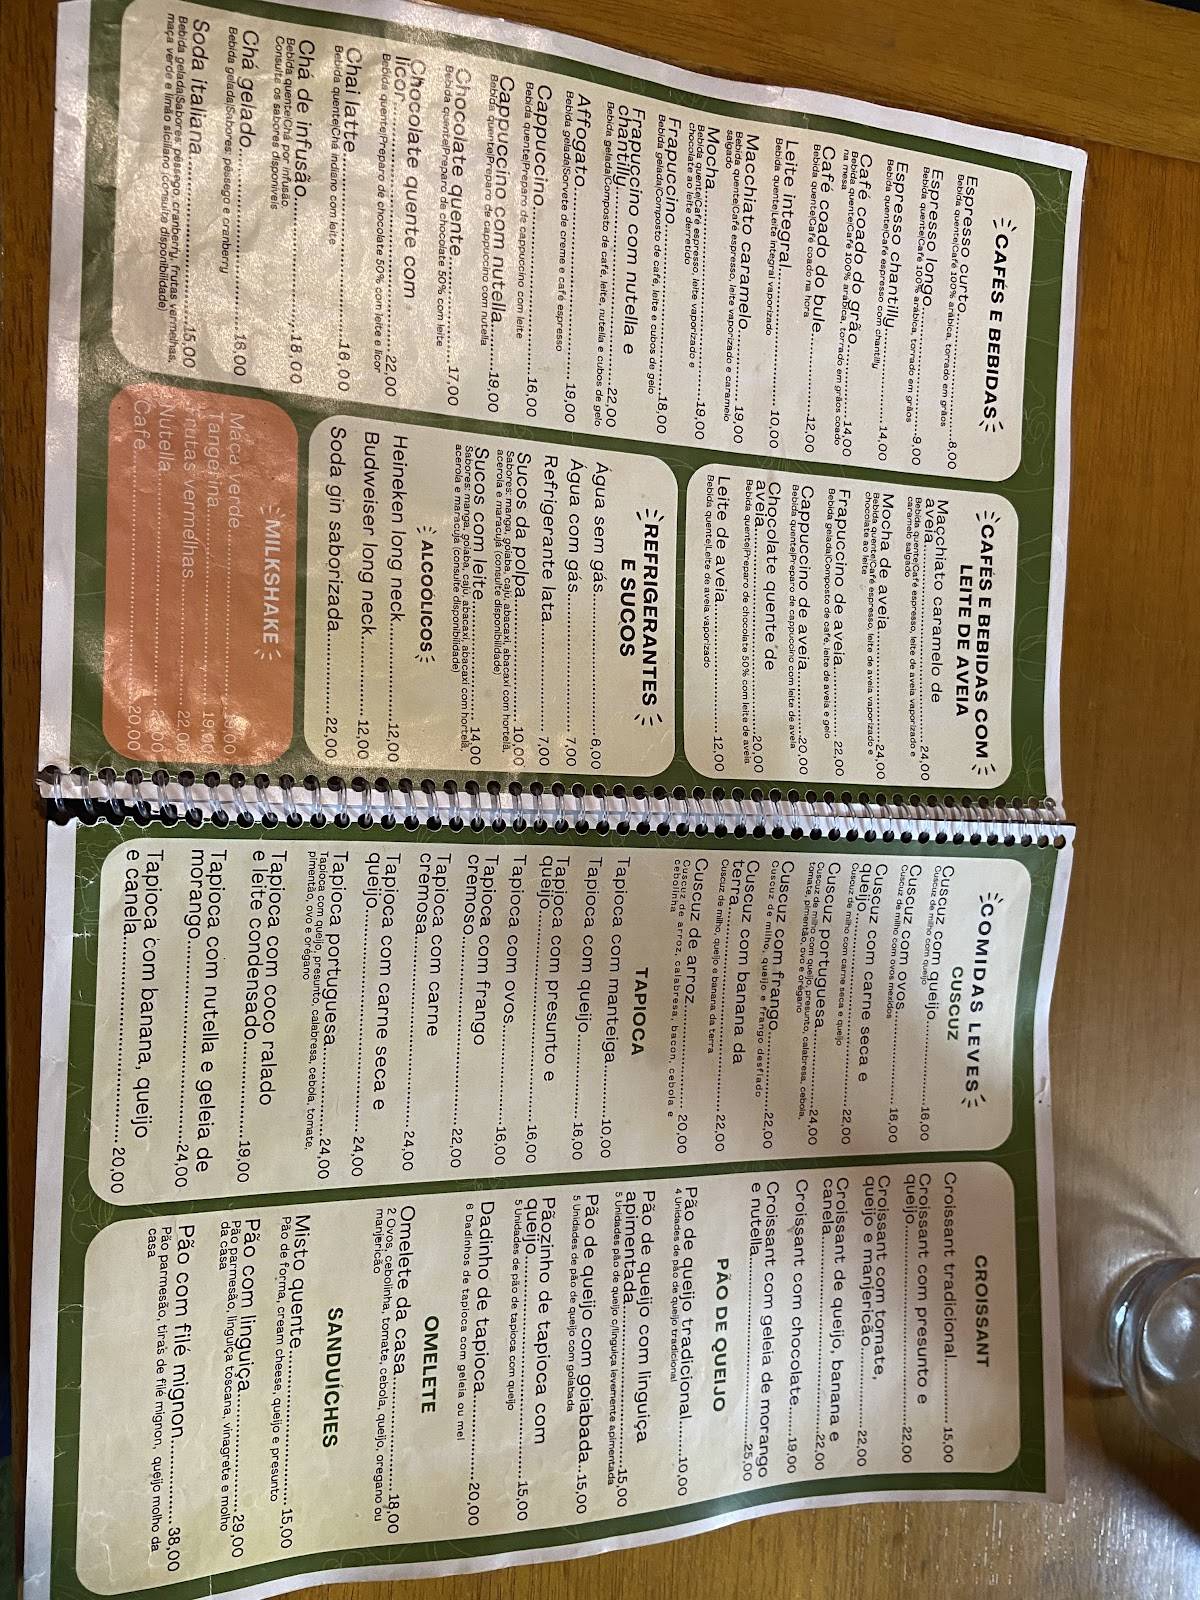 CAFÉS E BEBIDAS
Espresso curto..........................8,00
Bebida quente|Café 100% arábica, torrado em grãos
Espresso longo..........................9,00
Bebida quente|Café 100% arábica, torrado em grãos
Espresso chantilly..........................14,00
Bebida quente|Café espresso com chantilly
Café coado do grão..........................14,00
Bebida quente|Café 100% arábica, torrado em grãos coado
na mesa
Café coado do bule..........................12,00
Bebida quente|Café coado na hora
Leite integral..........................10,00
Bebida quente|Leite integral vaporizado
Macchiato caramelo..........................19,00
Bebida quente|Café espresso, leite vaporizado e caramelo
salgado
Mocha..........................19,00
Bebida quente|Café espresso, leite vaporizado e
chocolate ao leite derretido
Frapuccino..........................18,00
Bebida gelada|Composto de café, leite e cubos de gelo
Frapuccino com nutella e
chantilly..........................22,00
Bebida gelada|Composto de café, leite, nutella e cubos de gelo
Affogato..........................19,00
Bebida gelada|Sorvete de creme e café espresso
Cappuccino..........................16,00
Bebida quente|Preparo de cappuccino com leite
Cappuccino com nutella..........................19,00
Bebida quente|Preparo de cappuccino com nutella
Chocolate quente..........................17,00
Bebida quente|Preparo de chocolate 50% com leite
Chocolate quente com
licor..........................22,00
Bebida quente|Preparo de chocolate 50% com leite e licor
Chai latte..........................18,00
Bebida quente|Chá indiano com leite
Chá de infusão..........................18,00
Bebida quente|Chá por infusão.
Consulte os sabores disponíveis
Chá gelado..........................18,00
Bebida gelada|Sabores: pêssego e cranberry
Soda italiana..........................15,00
Bebida gelada|Sabores: pêssego, cranberry, frutas vermelhas,
maça verde e limão siciliano (consulte disponibilidade)
CAFÉS E BEBIDAS COM
LEITE DE AVEIA
Macchiato caramelo de
aveia..........................24,00
Bebida quente|Café espresso, leite de aveia vaporizado e
caramelo salgado
Mocha de aveia..........................24,00
Bebida quente|Café espresso, leite de aveia vaporizado e
chocolate ao leite
Frapuccino de aveia..........................22,00
Bebida gelada|Composto de café, leite de aveia e gelo
Cappuccino de aveia..........................20,00
Bebida quente|Preparo de cappuccino com leite de aveia
Chocolate quente de
aveia..........................20,00
Bebida quente|Preparo de chocolate 50% com leite de aveia
Leite de aveia..........................12,00
Bebida quente|Leite de aveia vaporizado
REFRIGERANTES
E SUCOS
Água sem gás..........................6,00
Água com gás..........................7,00
Refrigerante lata..........................7,00
Sucos da polpa..........................10,00
Sabores: manga, goiaba, caju, abacaxi, abacaxi com hortelã,
acerola e maracujá (consulte disponibilidade)
Sucos com leite..........................14,00
Sabores: manga, goiaba, caju, abacaxi, abacaxi com hortelã,
acerola e maracujá (consulte disponibilidade)
ALCOÓLICOS
Heineken long neck..........................12,00
Budweiser long neck..........................12,00
Soda gin saborizada..........................22,00
MILKSHAKE
Maça verde..........................
Tangerina..........................
Frutas vermelhas..........................22,00
Nutella..........................
Café..........................20,00
COMIDAS LEVES
CUSCUZ
Cuscuz com queijo..........................16,00
Cuscuz de milho com queijo
Cuscuz com ovos..........................16,00
Cuscuz de milho com ovos mexidos
Cuscuz com carne seca e
queijo..........................22,00
Cuscuz de milho com carne seca e queijo
Cuscuz portuguesa..........................24,00
Cuscuz de milho com queijo, presunto, calabresa, cebola,
tomate, pimentão, ovo e orégano
Cuscuz com frango..........................22,00
Cuscuz de milho, queijo e frango desfiado
Cuscuz com banana da
terra..........................22,00
Cuscuz de milho, queijo e banana da terra
Cuscuz de arroz..........................20,00
Cuscuz de arroz, calabresa, bacon, cebola e
cebolinha
TAPIOCA
Tapioca com manteiga..........................10,00
Tapioca com queijo..........................16,00
Tapioca com presunto e
queijo..........................16,00
Tapioca com ovos..........................16,00
Tapioca com frango
cremoso..........................22,00
Tapioca com carne
cremosa..........................24,00
Tapioca com carne seca e
queijo..........................24,00
Tapioca portuguesa..........................24,00
Tapioca com queijo, presunto, calabresa, cebola, tomate,
pimentão, ovo e orégano
Tapioca com coco ralado
e leite condensado..........................19,00
Tapioca com nutella e geleia de
morango..........................24,00
Tapioca com banana, queijo
e canela..........................20,00
CROISSANT
Croissant tradicional..........................15,00
Croissant com presunto e
queijo..........................22,00
Croissant com tomate,
queijo e manjericão..........................22,00
Croissant de queijo, banana e
canela..........................22,00
Croissant com chocolate..........................19,00
Croissant com geleia de morango
e nutella..........................25,00
PÃO DE QUEIJO
Pão de queijo tradicional..........................10,00
4 Unidades de pão de queijo tradicional
Pão de queijo com linguiça
apimentada..........................15,00
5 Unidades pão de queijo c/linguiça levemente apimentada
Pão de queijo com goiabada..........................15,00
5 Unidades de pão de queijo com goiabada
Pãozinho de tapioca com
queijo..........................15,00
5 Unidades de pão de tapioca com queijo
Dadinho de tapioca..........................20,00
6 Dadinhos de tapioca com geleia ou mel
OMELETE
Omelete da casa..........................18,00
2 Ovos, cebolinha, tomate, cebola, queijo, oregano ou
manjericão
SANDUÍCHES
Misto quente..........................15,00
Pão de forma, cream cheese, queijo e presunto
Pão com linguiça..........................29,00
Pão parmesão, linguiça toscana, vinagrete e molho
da casa
Pão com filé mignon..........................38,00
Pão parmesão, tirais de filé mignon, queijo molho da
casa